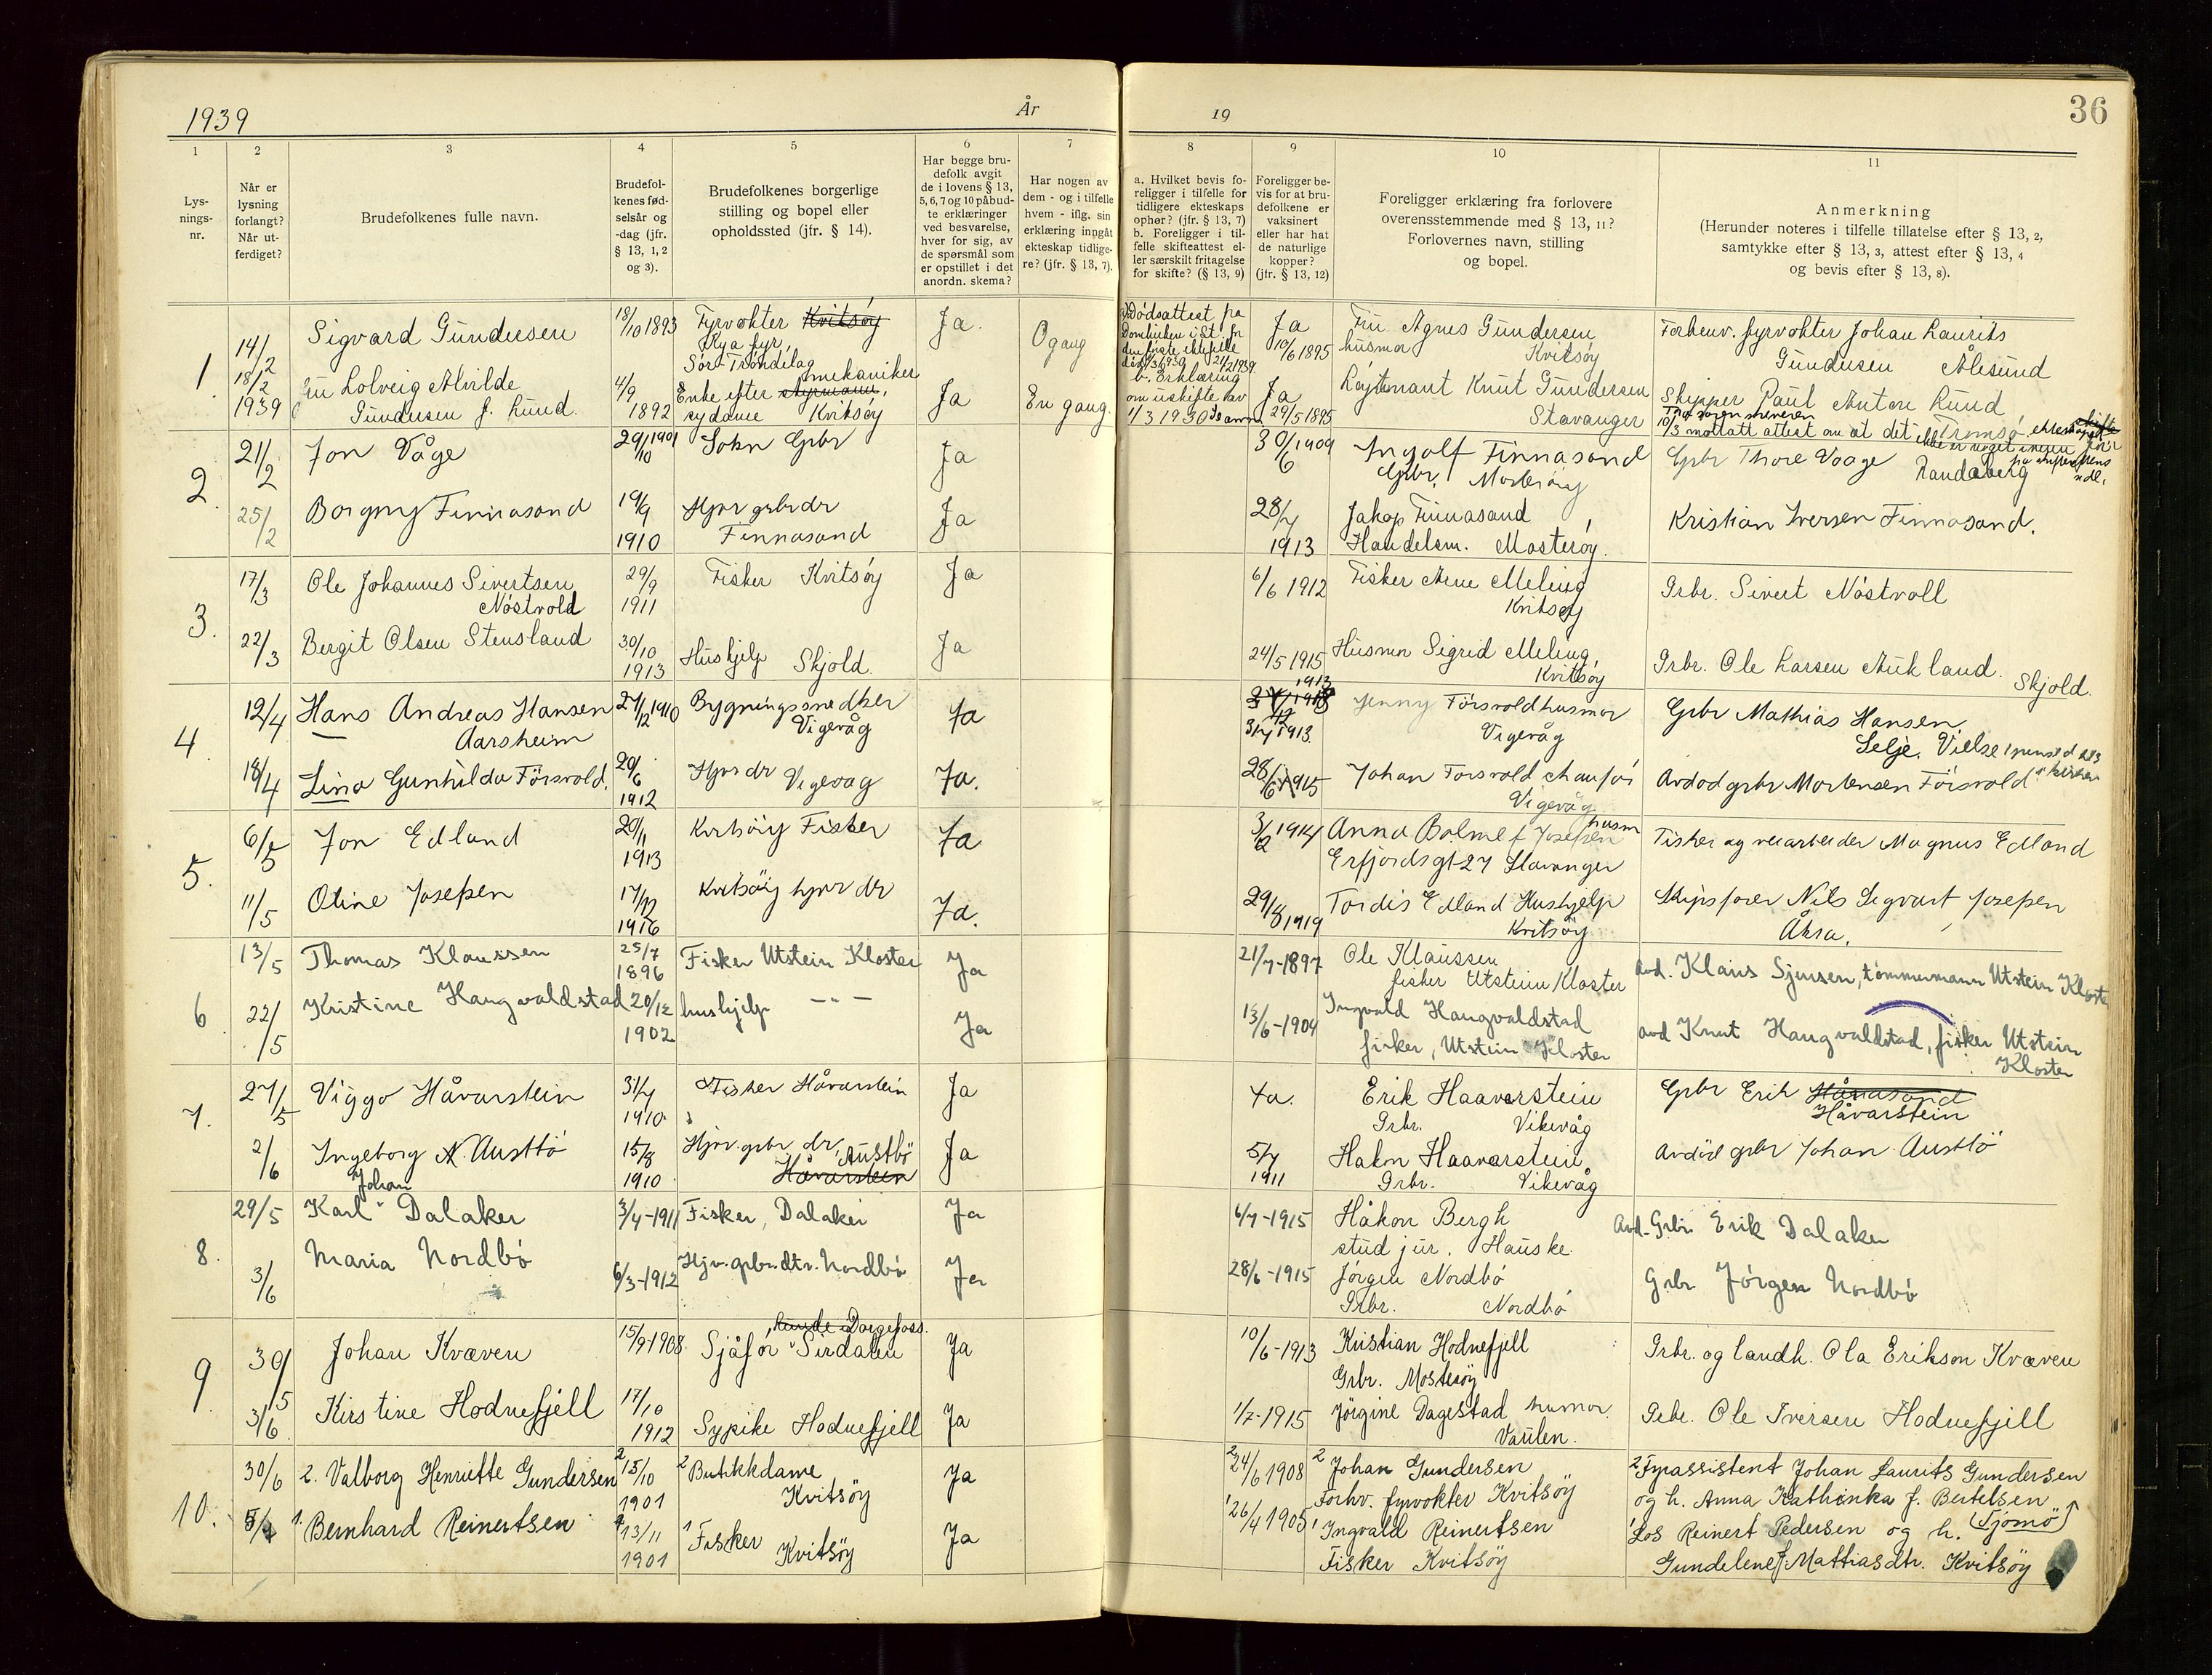 1939
År
19
36
1
Lys-
nings-
nr.
2
Når er
lysning
forlangt?
Når ut-
ferdiget?
3
Brudefolkenes fulle navn.
4
Brudefol-
kenes fød-
selsår og
-dag (jfr.
§ 13, 1, 2
og 3).
5
Brudefolkenes borgerlige
stilling og bopel eller
opholdssted (jfr. § 14).
6
Har begge bru-
defolk avgit
de i lovens § 13,
5, 6, 7 og 10 påbud-
te erklæringer
ved besvarelse,
hver for sig, av
de spørsmål som
er opstillet i det
anordn. skema?
7
Har nogen av
dem - og i tilfelle
hvem - iflg. sin
erklæring inngåt
ekteskap tidlige-
re? (jfr. § 13, 7).
8
a. Hvilket bevis fo-
religger i tilfelle for
tidligere ekteskaps
ophør? (jfr. § 13, 7)
b. Foreligger i til-
felle skifteattest el-
ler særskilt fritagelse
for skifte? (§ 13, 9)
9
Foreligger be-
vis for at bru-
defolkene er
vaksinert
eller har hat
de naturlige
kopper?
(jfr. § 13, 12)
10
Foreligger erklæring fra forlovere
overensstemmende med § 13, 11?
Forlovernes navn, stilling
og bopel.
11
Anmerkning
(Herunder noteres i tilfelle tillatelse efter § 13, 2,
samtykke efter § 13, 3, attest efter § 13, 4
og bevis efter § 13, 8).
1
14/2
18/2
1939
Sigvard Gundersen
18/10 1893
Fyrvokter Kvitsøy
Kya fyr,
Sør-Trøndelag
Ja.
0 gang
Dødsattest fra
Ja
10/6 1895
Fru Agnes Gundersen
husmor Kvitsøy
Forhenv. fyrvokter Johan Laurits
Gundersen Ålesund
Fru Solveig Alvilde
Gundersen f. Lund.
4/9
1892
mekaniker
Enke efter styrmann,
sydame Kvitsøy
Ja
En gang.
b. Erklæring
om uskifte av
1/3 1930
Ja
29/5 1895
Løytenant Knut Gundersen
Stavanger
Skipper Paul Anton Lund
Tromsø
10/3 mottatt attest om at det
2.
21/2
Jon Våge
29/10 1901
Sokn Grbr
Ja
30/6 1909
Ingolf Finnasand
Grbr. Mosterøy
Grbr Thore Vaage Randaberg
25/2
Borgny Finnasand
19/9
1910
Hjv grbrdr
Finnasand
Ja
28/7
1913
Jakop Finnasand
Handelsm. Mosterøy.
Kristian Iversen Finnasand.
3.
17/3
Ole Johannes Sivertsen
Nøstvold
29/9
1911
Fisker Kvitsøy
Ja
6/6 1912
Fisker Arne Meling
Kvitsøy
Grbr. Sivert Nøstvoll
22/3
Bergit Olsen Stensland
30/10
1913
Hushjelp Skjold.
Ja
24/5 1915
Husmor Sigrid Meling,
Kvitsøy
Grbr. Ole Larsen Aukland.
Skjold.
4.
12/4
Hans Andreas Hansen
Aarsheim
27/12 1910
Bygningssnedker
Vigevåg
Ja
1913
31/7 1913.
Jenny Førsvold husmor
Vigevåg
Grbr Mathias Hansen,
Selje. Vielse
18/4
Lina Gunhilda Førsvold.
20/6
1912
Hjv dr Vigevaag
Ja.
28/6 1915
Johan Førsvold chauffør
Vigevåg
Avdød grbr Mortensen Førsvold
5.
6/5
Jon Edland
20/11
1913
Kvitsøy Fisker
Ja
3/2 1914
Anna Bolme f Josefsen husm
Erfjordsgt 27 Stavanger
Fisker og veiarbeider Magnus Edland
11/5
Oline Josefsen
17/12
1916
Kvitsøy hjv dr
Ja.
29/8 1919
Tordis Edland Hushjelp
Kvitsøy
Skipsfører Nils Sigvart Josefsen
Åkra.
6
13/5
Thomas Klaussen
25/7
1896
Fisker Utstein Kloster
Ja
21/7-1897
Ole Klaussen
fisker Utstein Kloster
Avd. Klaus Sjursen, tømmermann Utstein Kloster
22/5
Kristine Haugvaldstad
20/12
1902
hushjelp -"-
Ja
13/6-1904
Ingvald Haugvaldstad
fisker, Utstein Kloster
avd Knut Haugvaldstad, fisker Utstein
Kloster
7.
27/5
Viggo Håvarstein
31/7
1910.
Fisker Håvarstein
Ja
Ja.
Erik Haaverstein
Grbr. Vikevåg
Grbr Erik Håvasand
Håvarstein
2/6
Ingeborg N. Austbø
15/8
1910
Hjv. grbr. dr, Austbø
Håvarstein
Ja
5/7
1911
Hakon Haaverstein
Grbr. Vikevåg
Avdød grbr Johan Austbø
8.
29/5
Johan
Karl Dalaker
3/4-1911
Fisker, Dalaker
Ja
6/7-1915
Håkon Bergh
stud jur. Hauske
Avd. Grbr. Erik Dalaker
3/6
Maria Nordbø
6/3-1912
Hjv. grbr. dtr. Nordbø
Ja
28/6-1915
Jørgen Nordbø
Grbr. Nordbø
Grbr Jørgen Nordbø
9
30/5
Johan Kvæven
15/9-1908
Dorgefoss.
Sjåfør Sirdalen
Ja
10/6-1913
Kristian Hodnefjell
Grbr. Mosterøy
Grbr. og landh. Ola Erikson Kvæven
3/6
Kirstine Hodnefjell
17/10
1912
Sypike Hodnefjell
Ja
1/7-1915
Jørgine Dagestad husmor.
Vaulen.
Grbr. Ole Iversen Hodnefjell
10.
30/6
2. Valborg Henriette Gundersen
2 15/10
1901
2 Butikkdame
Kvitsøy
Ja
2 24/6 1908
2 Johan Gundersen
Forhv. fyrvokter Kvitsøy
2 Fyrassistent Johan Laurits Gundersen
og h. Anna Kathinka f. Bertelsen
(Tjømø)
5/7
1. Bernhard Reinertsen
13/11
1901
1 Fisker
Kvitsøy
Ja
1 26/4 1905
1 Ingvald Reinertsen
Fisker Kvitsøy
1 Los Reinert Pedersen og h.
Gundelene f. Mattiasdtr. Kvitsøy